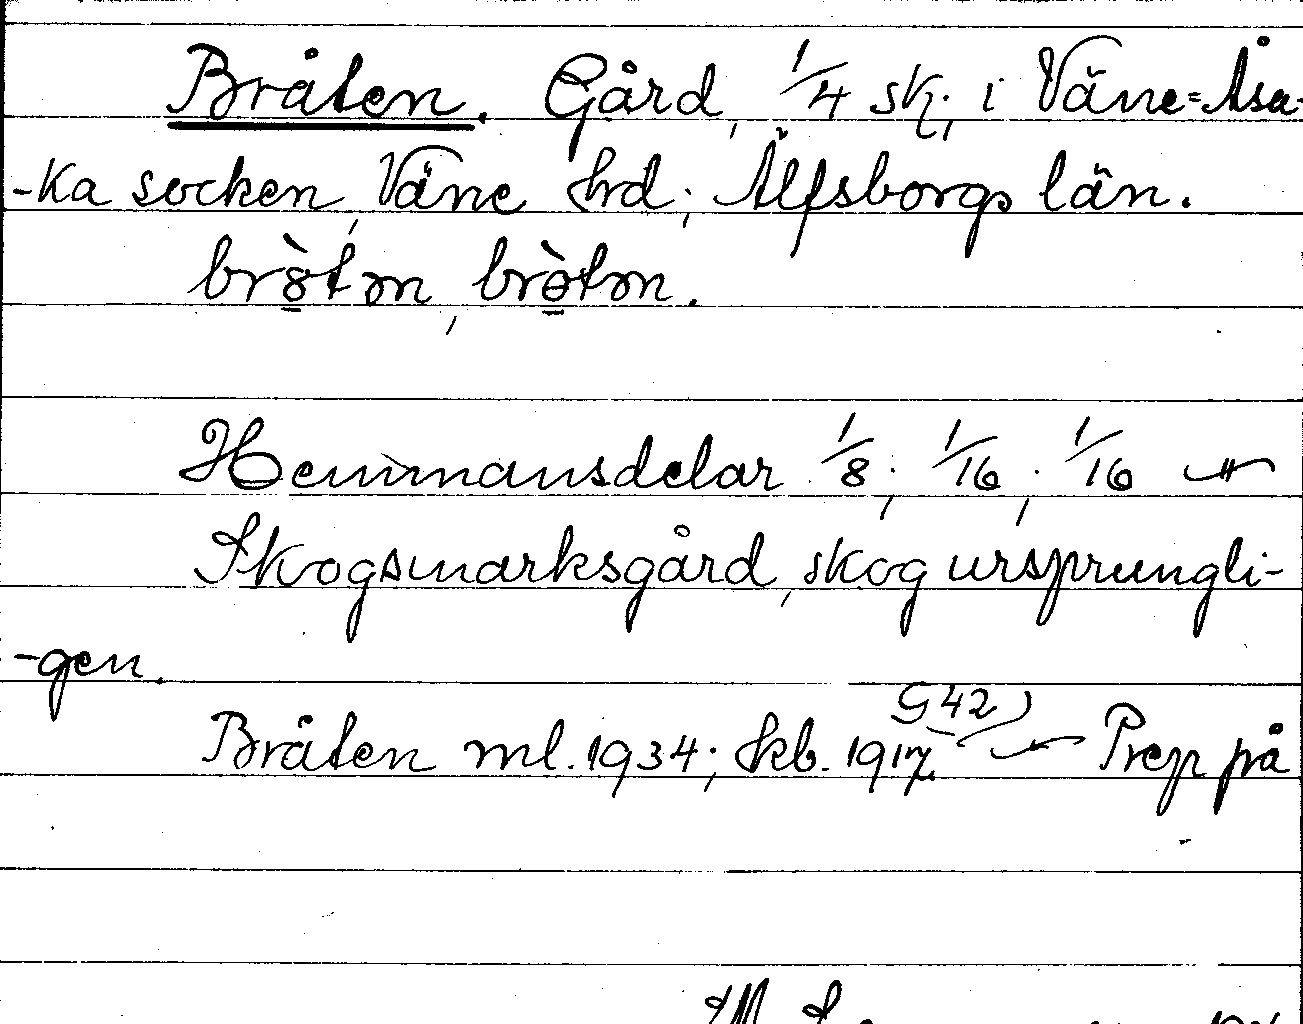 Bråten. Gård, 1/4 sk; i Väne=Åsa-
-ka socken, Väne hd; Älfsborgs län.
brò̱tən, brò̱tən.
Hemmansdelar 1/8; 1/16; 1/16
Skogsmarksgård, skog ursprungli-
-gen.
G42)
Bråten ml. 1934; kb. 1917. Prep på